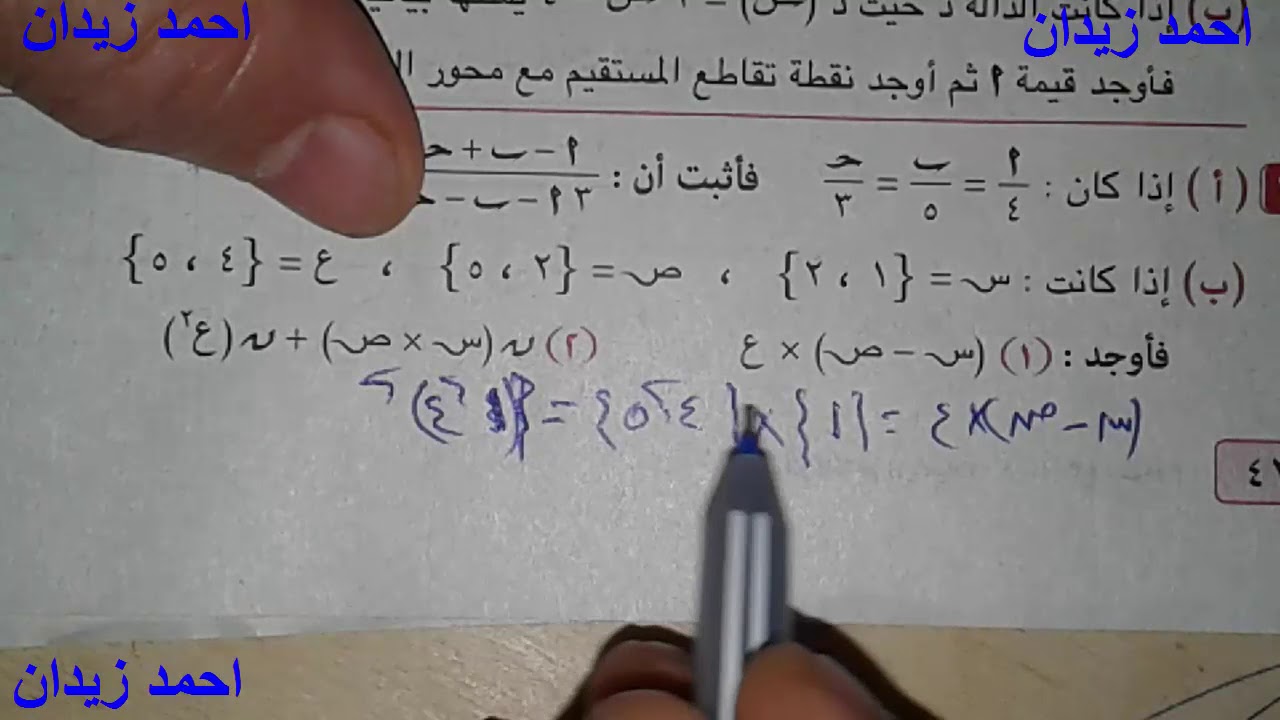 احمد زيدان
احمد زيدان
(ب) إذا كانت الدالة د حيث د (س) =
فأوجد قيمة ٩ ثم أوجد نقطة تقاطع المستقيم مع محور
(أ) إذا كان : ٩/٤ = ب/٥ = حـ/٣ فأثبت أن : (٩ - ب + حـ)/(٣ ٩ - ب - حـ)
(ب) إذا كانت : س = {١ ، ٢} ، ص = {٢ ، ٥} ، ع = {٤ ، ٥}
فأوجد : (١) (س - ص) × ع (٢) ن (س × ص) + ن (ع٢)
(س - ص) × ع = {١} × {٤ ، ٥} = {(١ ، ٤) ،
احمد زيدان